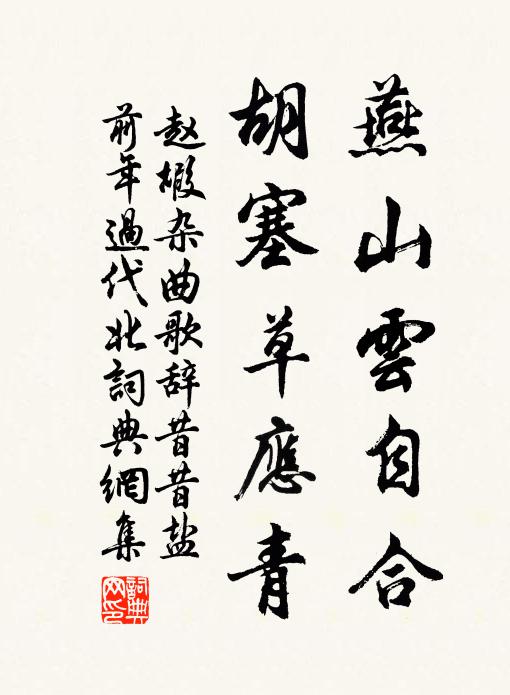 燕山雲自合
胡塞草應青
赵嘏杂曲歌辞昔昔盐
前年過代北詞典網集
詞典网印